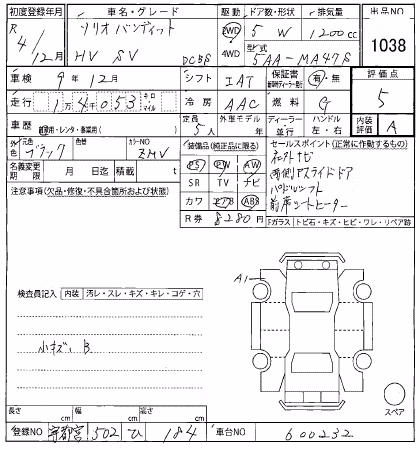 初度登録年月 車名・グレード 駆動 ドア数・形状 排気量 出品NO
R 4/12月 ソリオ バンディット HV SV DCBS 2WD 4WD 5 W 1200cc 1038
型式 5AA-MA47S
車検 9年12月 シフト IAT 保証書 有・無 評価点
走行 1万4千053 キロ マイル 冷房 AAC 燃料 G 5
車歴 自家用・レンタ・事業用( ) 定員 5人 外車モデル 年 ディーラー 並行 ハンドル 左・右 内装評価 A
外色 元色 ブラック 色替 カラーNO ZMV 装備品(純正品に限る) セールスポイント(正常に作動するもの)
名義変更期限 月 日迄 積載 t PS PW AW
注意事項(欠品・修復・不具合箇所および状態) SR TV ナビ
両側Pスライドドア
カワ エアB ABS
パドルシフト
R券 8280円
前席シートヒーター
Fガラス トビ石・キズ・ヒビ・ワレ・リペア跡
A1
検査員記入 内装 汚レ・スレ・キズ・キレ・コゲ・穴
小キズ B
スペア
長さ cm 幅 cm 高さ cm
登録NO 宇都宮 502 ひ 184 車台NO 600232